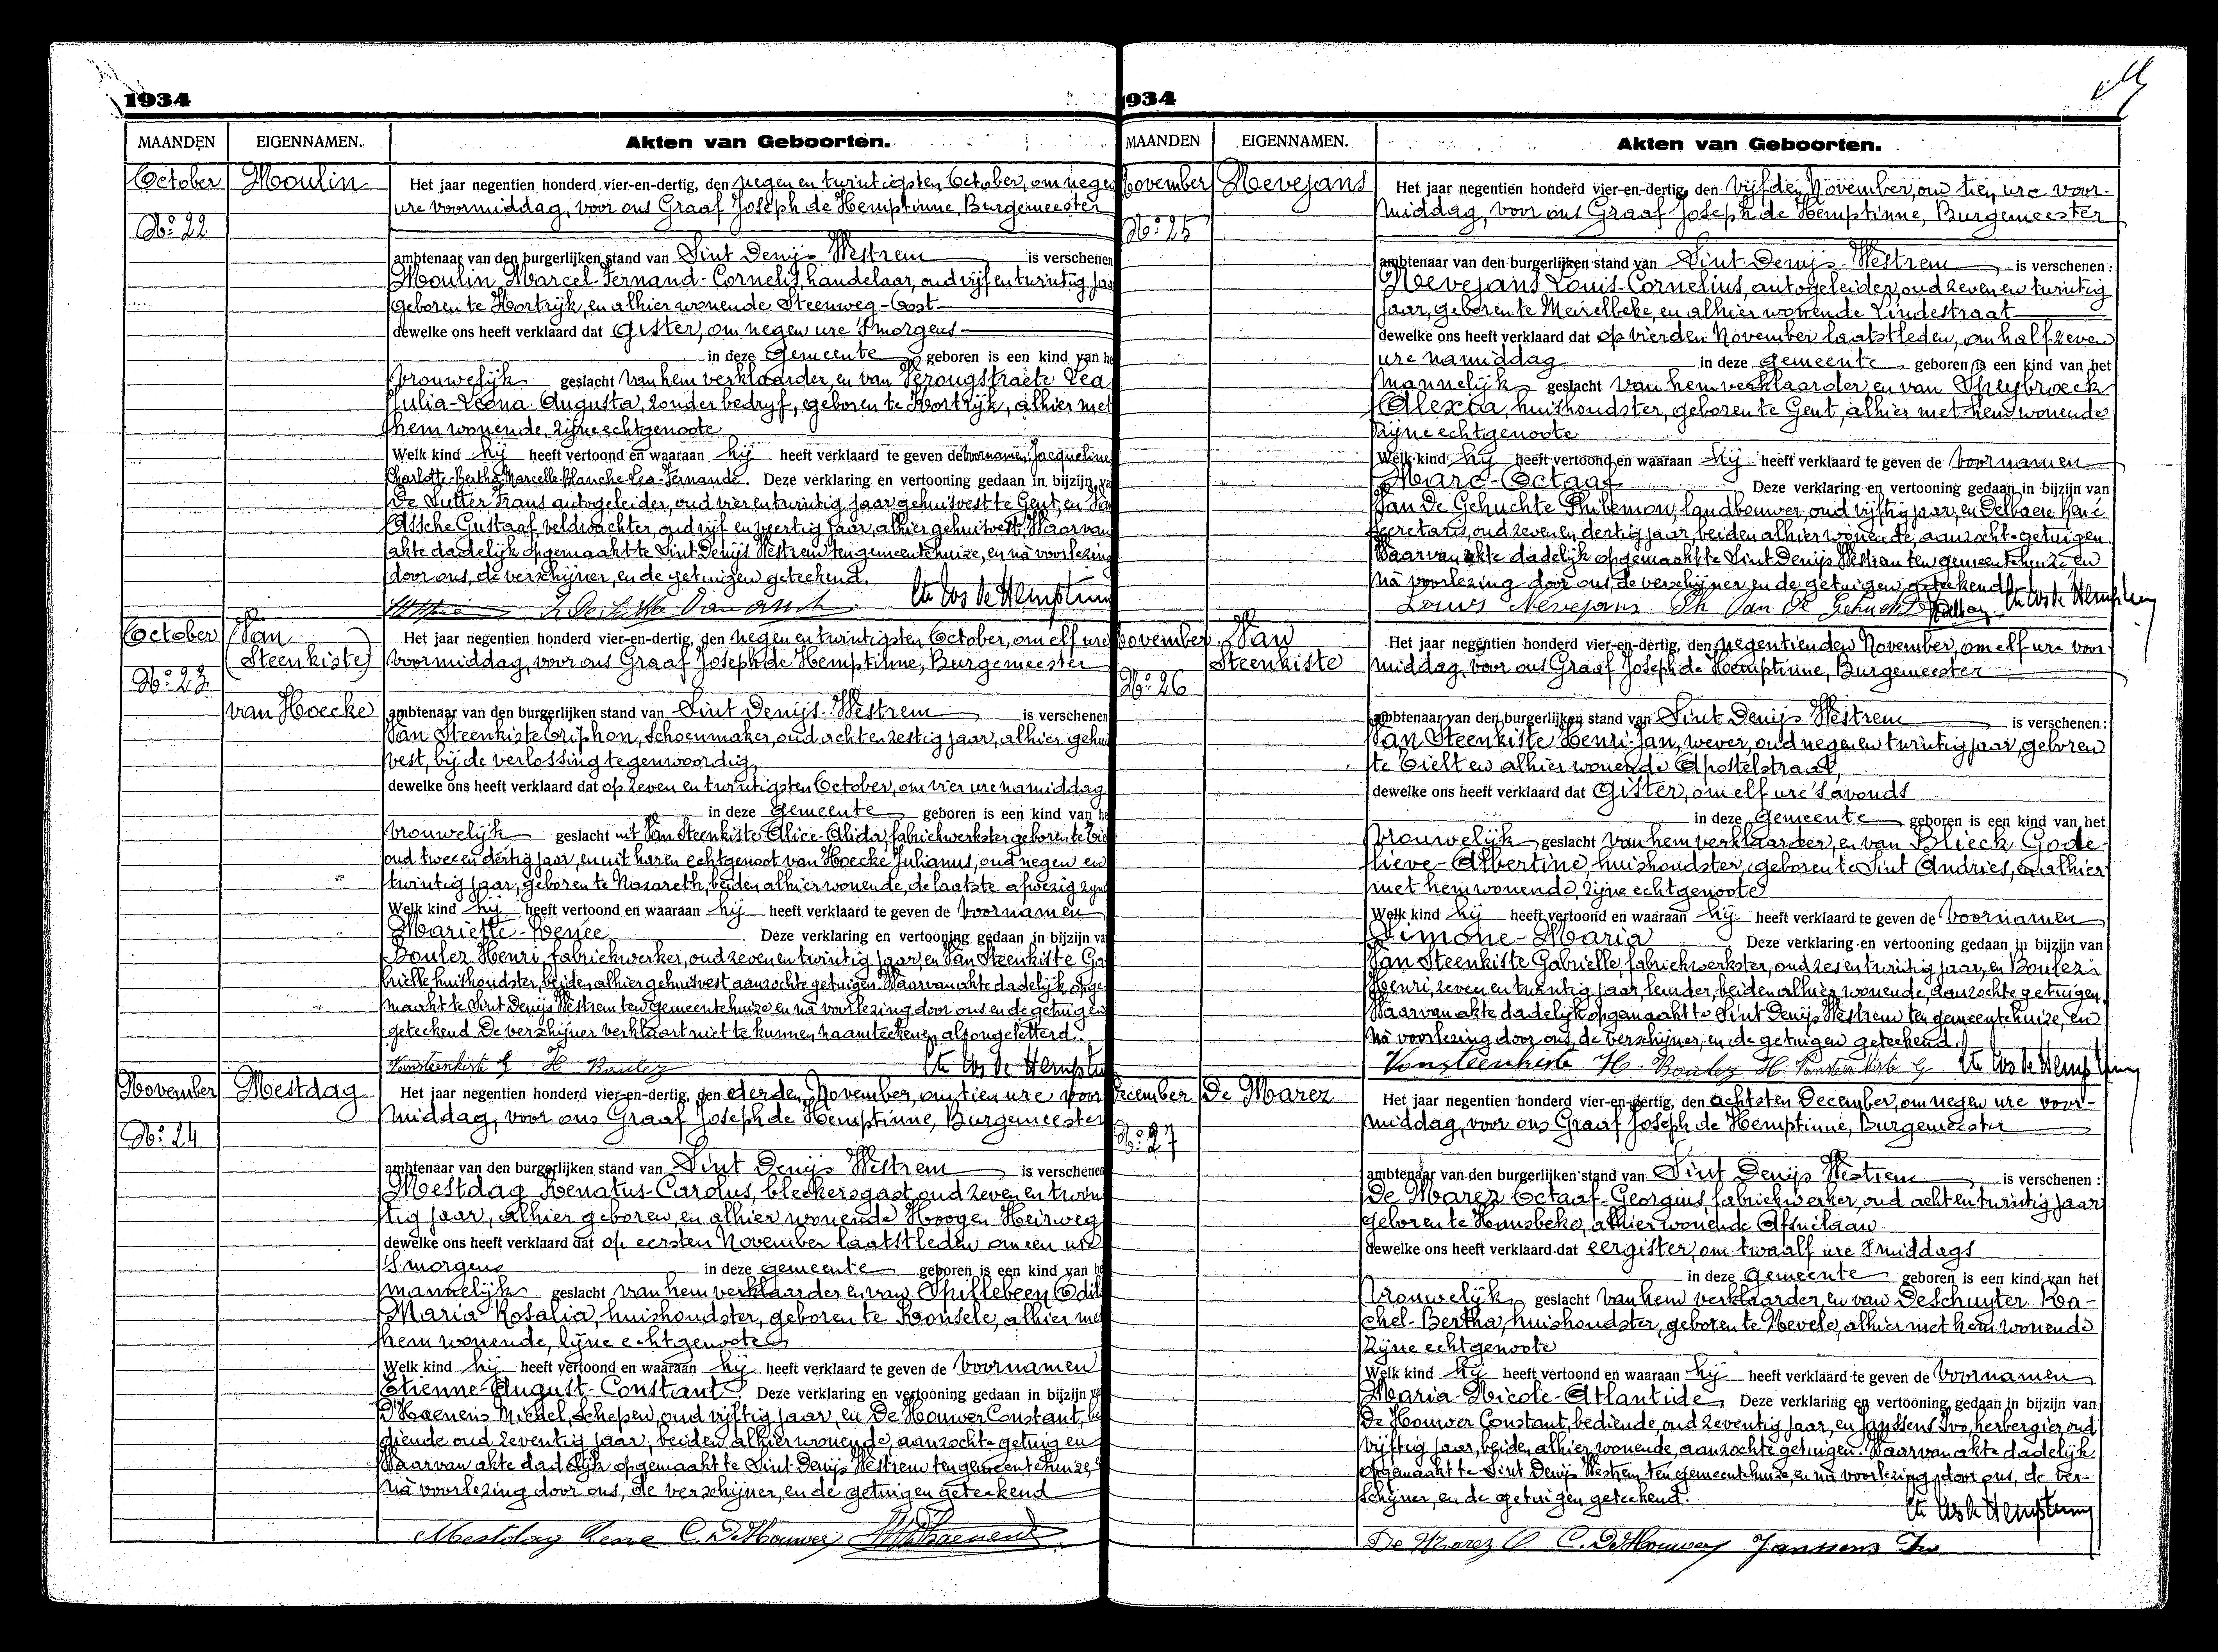 1934
MAANDEN EIGENNAMEN. Akten van Geboorten.
October Moulin
No: 22
Het jaar negentien honderd vier-en-dertig, den negen en twintigsten October, om negen
ure voormiddag, voor ons Graaf Joseph de Hemptinne, Burgemeester
ambtenaar van den burgerlijken stand van Sint Denijs Westrem is verschenen
Moulin Marcel-Fernand-Cornelis, handelaar, oud vijf en twintig jaar
geboren te Kortrijk, en alhier wonende Steenweg-Oost
dewelke ons heeft verklaard dat Gister, om negen ure 's morgens
in deze Gemeente geboren is een kind van he
vrouwelijk geslacht van hem verklaarder, en van Verougstraete Lea
Julia-Leona Augusta, zonder bedryf, geboren te Kortrijk, alhier met
hem wonende, zijne echtgenoote
Welk kind hij heeft vertoond en waaraan hij heeft verklaard te geven de voornamen Jacqueline
Charlotte-Bertha-Marcelle-Blanche-Lea-Fernande. Deze verklaring en vertooning gedaan in bijzijn va
De Sutter Frans autogeleider, oud vier en twintig jaar gehuisvest te Gent, en Van
Assche Gustaaf veldwachter, oud vijf en veertig jaar, alhier gehuisvest, Waarvan
akte dadelijk opgemaakt te Sint Denijs Westrem ten gemeentehuize, en na voorlezing
door ons, de verschijner, en de getuigen geteekend.
Cte Jos de Hemptinne
October Van
Steenkiste
No: 23
van Hoecke
Het jaar negentien honderd vier-en-dertig, den negen en twintigsten October, om elf ure
voormiddag, voor ons Graaf Joseph de Hemptinne, Burgemeester
ambtenaar van den burgerlijken stand van Sint Denijs-Westrem is verschenen
Van Steenkiste Triphon, Schoenmaker, oud acht en zestig jaar, alhier gehuis
vest, bij de verlossing tegenwoordig,
dewelke ons heeft verklaard dat op zeven en twintigsten October, om vier ure namiddag
in deze Gemeente geboren is een kind van he
vrouwelijk geslacht uit Van Steenkiste Alice-Alida, fabriekwerkster geboren te Tie
oud twee en dertig jaar, en uit haren echtgenoot van Hoecke Julianus, oud negen en
twintig jaar, geboren te Nazareth, beiden alhier wonende, de laatste afwezig zijnd
Welk kind hij heeft vertoond en waaraan hij heeft verklaard te geven de voornamen
Mariette-Renée Deze verklaring en vertooning gedaan in bijzijn va
Boulez Henri, fabriekwerker, oud zeven en twintig jaar, en Van Steenkiste Ga
brielle huishoudster, beiden alhier gehuisvest, aanzochte getuigen. Waarvan akte dadelijk opge
maakt te Sint Denijs Westrem ten gemeentehuize en na voorlezing door ons en de getuigen
geteekend. De verschijner verklaart niet te kunnen naamteekenen als ongeletterd.
Vansteenkiste G H Boulez Cte Jos de Hemptin
November Mestdag
No: 24
Het jaar negentien honderd vier-en-dertig, den derden November, om tien ure voor
middag, voor ons Graaf Joseph de Hemptinne, Burgemeester
ambtenaar van den burgerlijken stand van Sint Denijs Westrem is verschenen
Mestdag Renatus-Carolus, bleekersgast, oud zeven en twin
tig jaar, alhier geboren, en alhier wonende Hoogen Heirweg
dewelke ons heeft verklaard dat op eersten November laatstleden om een ure
's morgens in deze gemeente geboren is een kind van he
mannelijk geslacht van hem verklaarder en van Spillebeen Odil
Maria-Rosalia, huishoudster, geboren te Ronsele, alhier met
hem wonende, zijne echtgenoote
Welk kind hij heeft vertoond en waaraan hij heeft verklaard te geven de voornamen
Etienne-August-Constant Deze verklaring en vertooning gedaan in bijzijn va
D'Haenens Michel, Schepen, oud vijftig jaar, en De Houwer Constant, be
diende oud zeventig jaar, beiden alhier wonende, aanzochte getuigen
Waarvan akte dadelijk opgemaakt te Sint Denijs Westrem ten gemeentehuize, en
na voorlezing door ons, de verschijner, en de getuigen geteekend
Mestdag Rene C. De Houwer M. D'haenens
934
MAANDEN EIGENNAMEN. Akten van Geboorten.
November Nevejans
No: 25
Het jaar negentien honderd vier-en-dertig, den vijfden November, om tien ure voor-
middag, voor ons Graaf Joseph de Hemptinne, Burgemeester
ambtenaar van den burgerlijken stand van Sint Denijs-Westrem is verschenen:
Nevejans Louis-Cornelius, autogeleider, oud zeven en twintig
jaar, geboren te Meirelbeke, en alhier wonende Lindestraat
dewelke ons heeft verklaard dat op vierden November laatstleden, om half zeven
ure namiddag in deze gemeente geboren is een kind van het
mannelijk geslacht van hem verklaarder en van Speybroeck
Alexia, huishoudster, geboren te Gent, alhier met hem wonende
zijne echtgenoote
Welk kind hij heeft vertoond en waaraan hij heeft verklaard te geven de voornamen
Marc-Octaaf Deze verklaring en vertooning gedaan in bijzijn van
Van De Gehuchte Philemon, landbouwer, oud vijftig jaar, en Delbaere René
secretaris, oud zeven en dertig jaar, beiden alhier wonende, aanzochte getuigen.
Waarvan akte dadelijk opgemaakt te Sint Denijs Westrem ten gemeentehuize, en
na voorlezing door ons, de verschijner en de getuigen geteekend
Louis Nevejans Ph Van De Gehuchte Cte Jos de Hemptinne
November Van
Steenkiste
No: 26
Het jaar negentien honderd vier-en-dertig, den negentienden November, om elf ure voor
middag, voor ons Graaf Joseph de Hemptinne, Burgemeester
ambtenaar van den burgerlijken stand van Sint Denijs Westrem is verschenen:
Van Steenkiste Henri-Jan, wever, oud negen en twintig jaar, geboren
te Tielt en alhier wonende Apostelstraat,
dewelke ons heeft verklaard dat Gister, om elf ure 's avonds
in deze Gemeente geboren is een kind van het
vrouwelijk geslacht van hem verklaarder, en van Blieck Gode-
lieve-Albertine, huishoudster, geboren te Sint Andries, en alhier
met hem wonende, zijne echtgenoote
Welk kind hij heeft vertoond en waaraan hij heeft verklaard te geven de voornamen
Simone-Maria Deze verklaring en vertooning gedaan in bijzijn van
Van Steenkiste Gabrielle, fabriekwerkster, oud zes en twintig jaar, en Boulez
Henri, zeven en twintig jaar, leurder, beiden alhier wonende, aanzochte getuigen.
Waarvan akte dadelijk opgemaakt te Sint Denijs Westrem ten gemeentehuize, en
na voorlezing door ons, de verschijner, en de getuigen geteekend.
Vansteenkiste H. Boulez H Vansteenkiste G Cte Jos de Hemptinne
December De Marez
No: 27
Het jaar negentien honderd vier-en-dertig, den achtsten December, om negen ure voor-
middag, voor ons Graaf Joseph de Hemptinne, Burgemeester
ambtenaar van den burgerlijken stand van Sint Denijs Westrem is verschenen:
De Marez Octaaf-Georgius, fabriekwerker, oud acht en twintig jaar
geboren te Hansbeke, alhier wonende Afsnélaan
dewelke ons heeft verklaard dat eergister, om twaalf ure 's middags
in deze Gemeente geboren is een kind van het
vrouwelijk geslacht van hem verklaarder, en van DeSchuyter Ra-
chel-Bertha, huishoudster, geboren te Nevele, alhier met hem wonende
zijne echtgenoote
Welk kind hij heeft vertoond en waaraan hij heeft verklaard te geven de voornamen
Maria-Nicole-Atlantide Deze verklaring en vertooning gedaan in bijzijn van
De Houwer Constant, bediende, oud zeventig jaar, en Janssens Ivo, herbergier oud
vijftig jaar, beiden alhier wonende, aanzochte getuigen. Waarvan akte dadelijk
opgemaakt te Sint Denijs Westrem ten gemeentehuize, en na voorlezing door ons, de ver-
schijner, en de getuigen geteekend.
Cte Jos de Hemptinne
De Marez O C. De Houwer Janssens Ivo